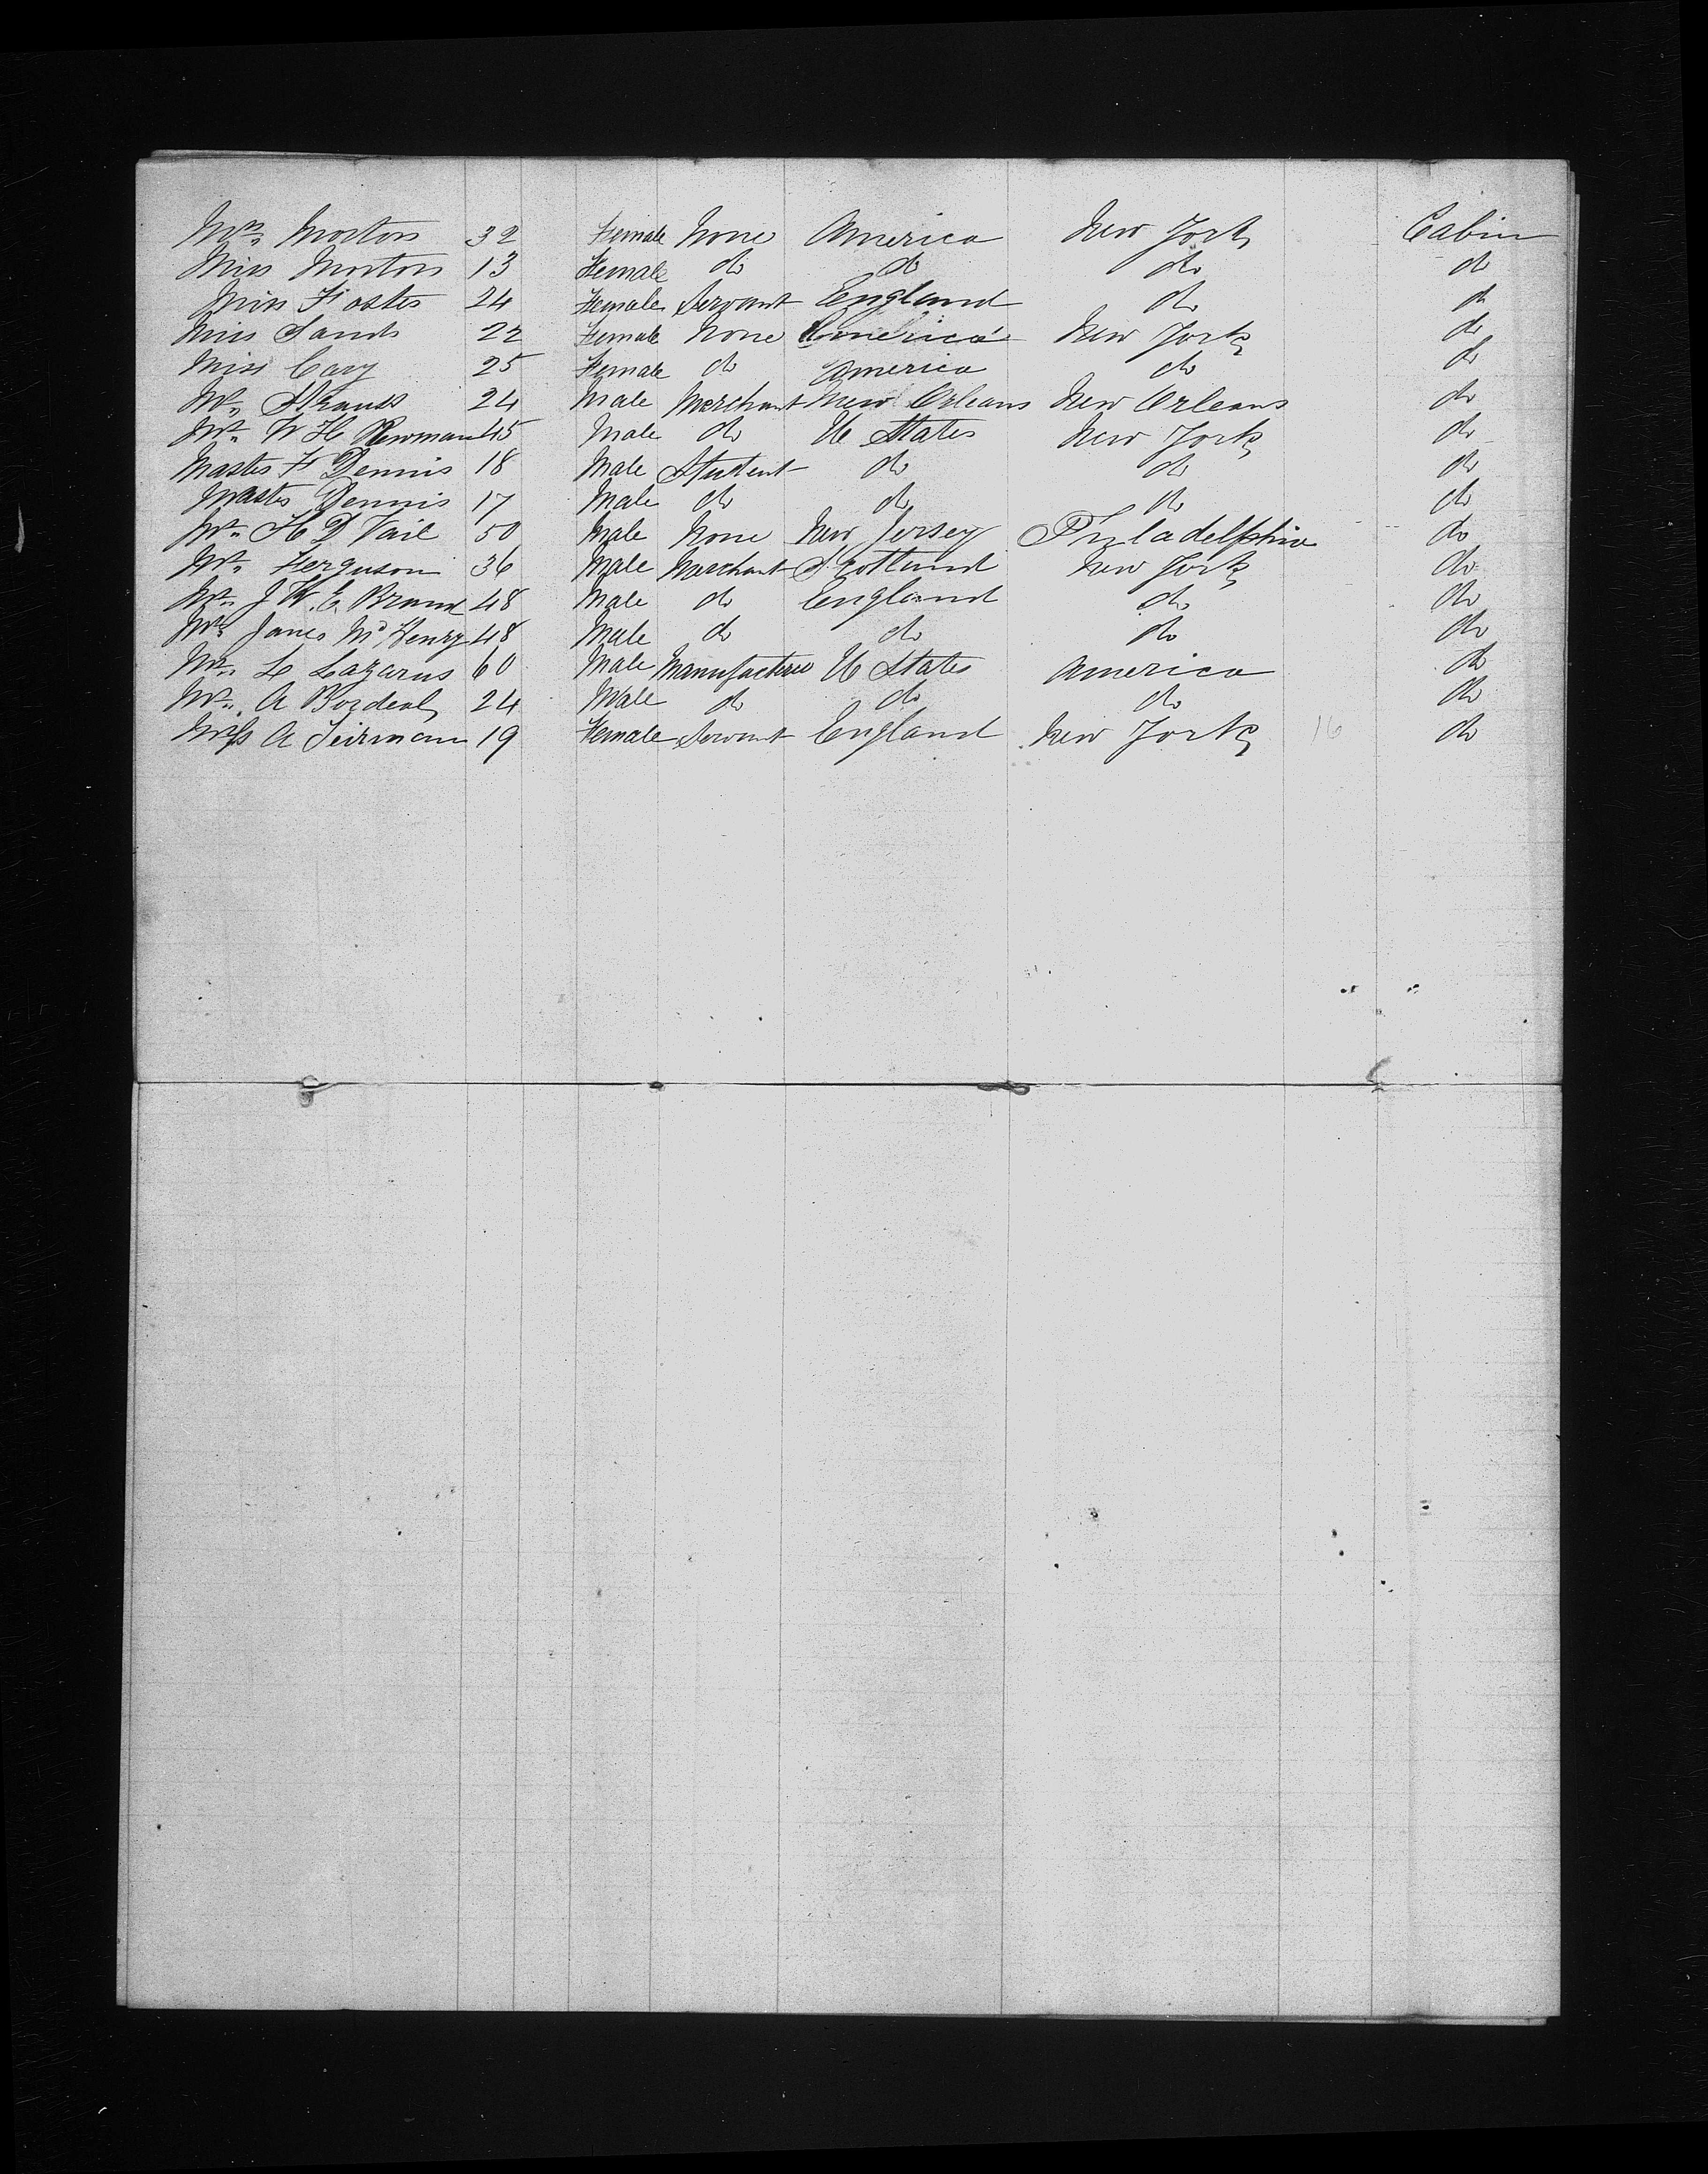 Mrs. Morton 32 Female None America New York Cabin
Miss Morton 13 Female do do do do
Miss Foster 24 Female Servant England do do
Miss Sands 22 Female None America New York do
Miss Cary 25 Female do America do do
Mr. Strauss 24 Male Merchant New Orleans New Orleans do
Mr. W H Newman 45 Male do U States New York do
Master F Dennis 18 Male Student do do do
Master Dennis 17 Male do do do do
Mr. H D Vail 50 Male None New Jersey Philadelphia do
Mr. Ferguson 36 Male Merchant Scotland New York do
Mr. J W. E. Brand 48 Male do England do do
Mr. James McHenry 48 Male do do do do
Mr. L Lazarus 60 Male Manufacturer U States America do
Mr. A 24 Male do do do do
Miss A 19 Female Servant England New York 16 do